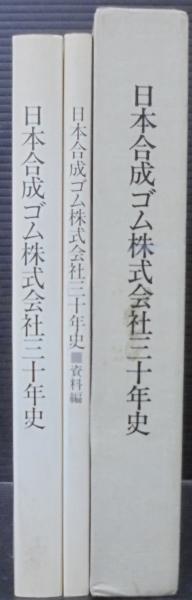 日本合成ゴム株式会社三十年史
日本合成ゴム株式会社三十年史■資料編
日本合成ゴム株式会社三十年史